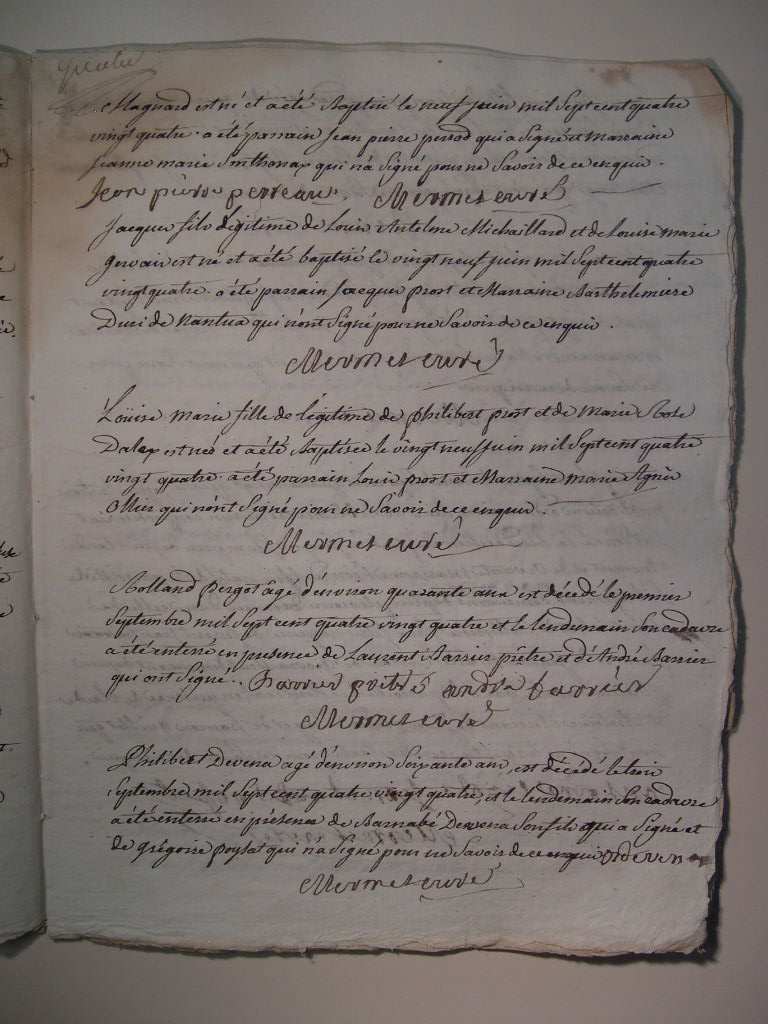 quatre
Magnard est né et a été Baptisé le neuf juin mil Sept cent quatre
vingt quatre. a été parrain Jean pierre perrod qui a Signé et Marraine
Jeanne marie Smthonax qui n'a Signé pour ne Savoir de ce enquir.
Jean pierre perreau. Mermet curé
Jacque fils légitime de Louis Antelme Michaillard et de Louise Marie
gervais est né et a été baptisé le vingt neuf juin mil Sept cent quatre
vingt quatre. a été parrain Jacque prost et Marraine Barthelemiere
Duri de Nantua qui n'ont Signé pour ne Savoir de ce enquir.
Mermet curé
Loüise marie fille de légitime de philibert prost et de Marie Rose
Dalex est née et a été Baptisée le vingt neuf juin mil Sept cent quatre
vingt quatre. a été parrain Louis prost et Marraine marie Agnès
qui n'ont Signé pour ne Savoir de ce enquir.
Mermet curé
Rolland pergot âgé d'environ quarante ans est décédé le premier
Septembre mil Sept cent quatre vingt quatre et le lendemain Son cadavre
a été enterré en presence de Laurent Barrier prêtre et d'André Barrier
qui ont Signé. Barrier prêtre andre barrier
Mermet curé
Philibert Devena agé d'environ Soixante ans, est décédé le trois
Septembre mil Sept cent quatre vingt quatre, et le lendemain Son cadavre
a été enterré en présence de Barnabé Devena Son fils qui a Signé et
de grégoire poysat qui n'a Signé pour ne Savoir de ce enquir
Mermet curé